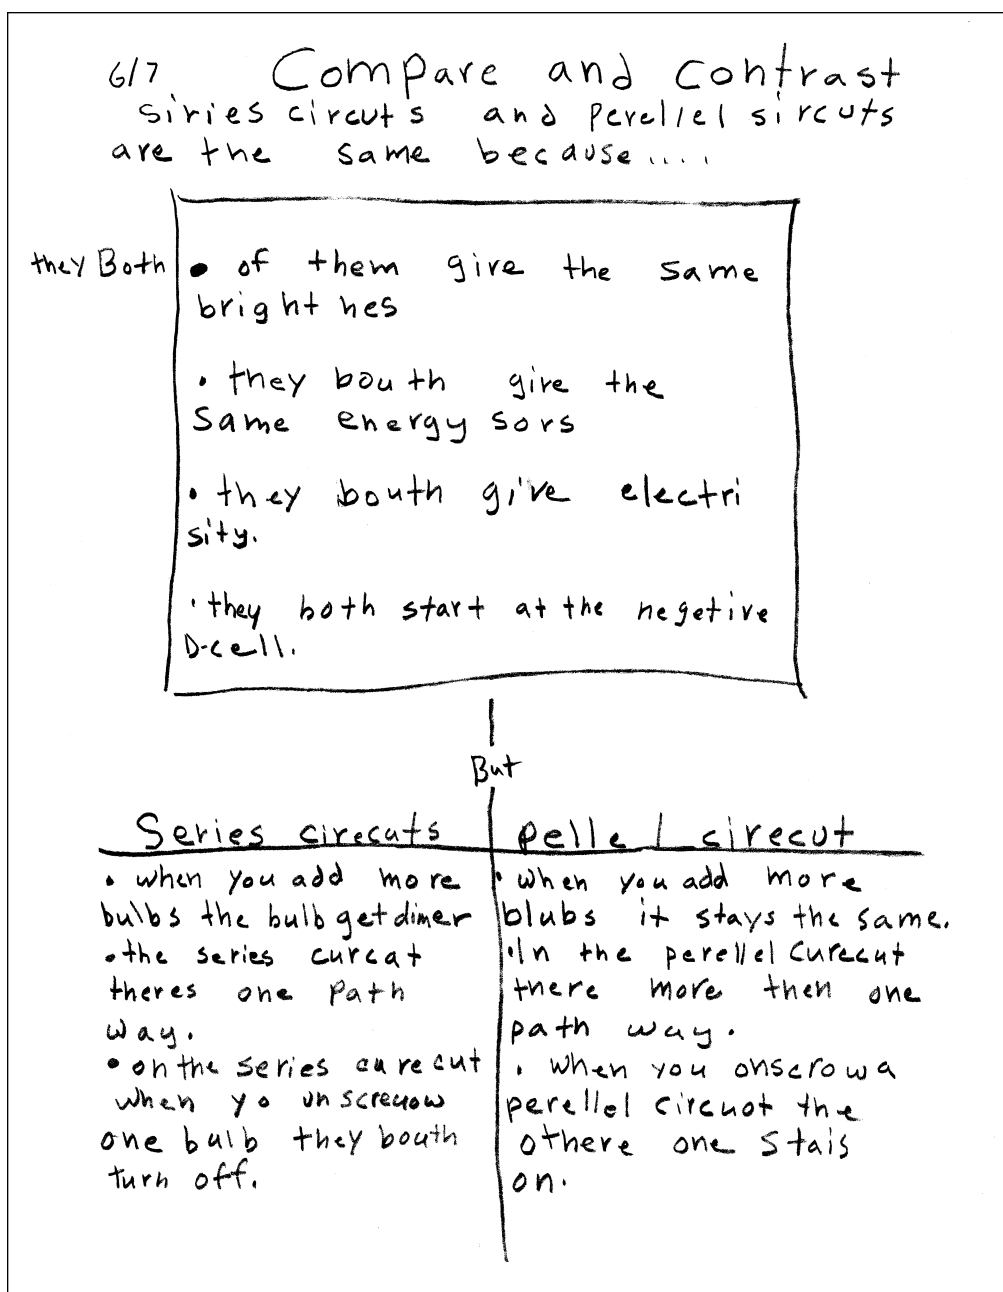 6/7 Compare and contrast
siries circuts and perellel sircuts
are the same because....
they Both • of them give the same
brightnes
• they bouth give the
same energy sors
• they bouth give electri
sity.
• they both start at the negetive
D-cell.
But
Series cirecuts
• when you add more
bulbs the bulb get dimer
• the series curcat
theres one path
way.
• on the series curecut
when yo unscreuow
one bulb they bouth
turn off.
pellel cirecut
• when you add more
blubs it stays the same.
• In the perellel Curecut
there more then one
path way.
• when you onscrow a
perellel circuot the
othere one stais
on.